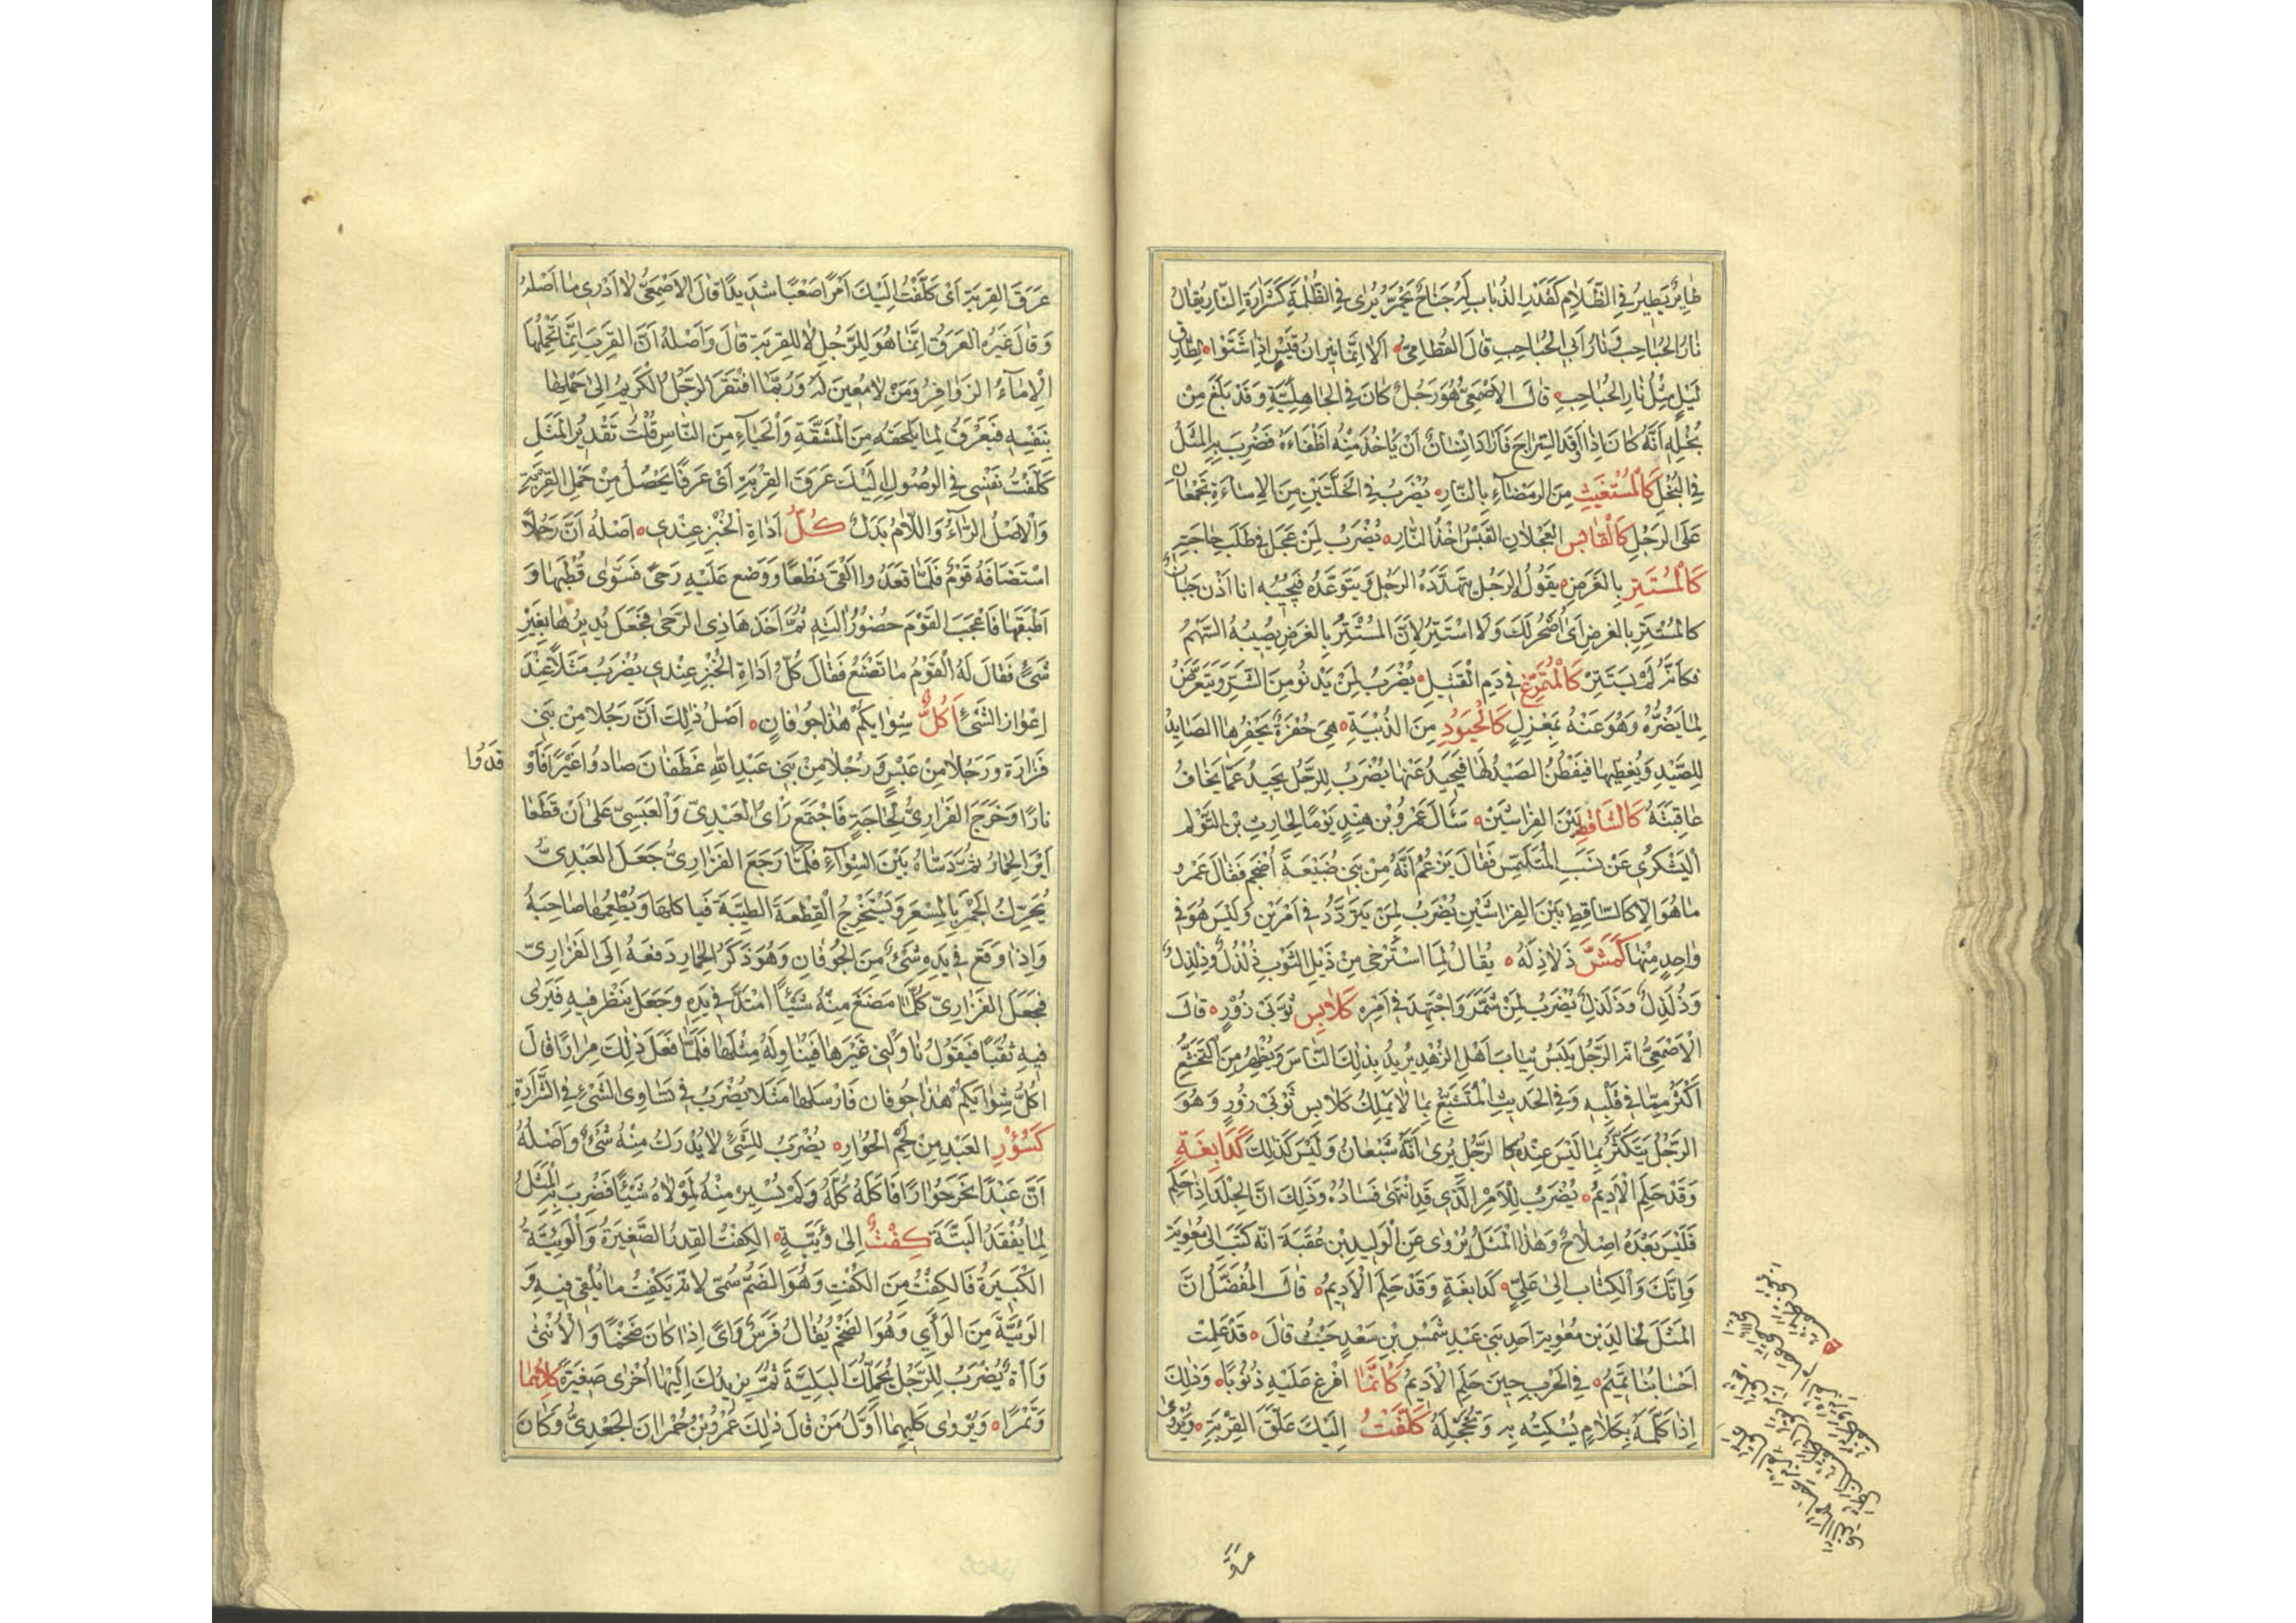 طائر يطير في الظلام كقدر الذباب له جناح يحمر يرى في الظلمة كشرارة النار يقال
نار الحباحب ونار أبي الحباحب قال القطامي ألا إنما نيران قيس إذا اشتوا لطارق
ليل مثل نار الحباحب قال الأصمعي هو رجل كان في الجاهلية وقد بلغ من
بخله أنه كان إذا أوقد السراج فأراد إنسان أن يأخذ منه أطفاءه فضرب به المثل
في البخل كالمستغيث من الرمضاء بالنار يضرب في الخلتين من الإساءة تجمعان
على الرجل كالقابس العجلان القبس أخذ النار يضرب لمن عجل في طلب حاجته
كالمستتر بالغرض يقول الرجل يتهدده الرجل ويتوعده فيجيبه انا اذن جبان
كالمستتر بالغرض أي أضحر لك ولا استتر لأن المستتر بالغرض يصيبه السهم
فكأنه لم يستتر كالمتمرغ في دم القتيل يضرب لمن يدنو من الشر ويتعرض
لما يضره وهو عنه بمعزل كالحيود من الذبية هي حفرة يحفرها الصايد
للصيد ويغطيها فيفطن الصيد لها فيحيد عنها يضرب للرجل يحيد عما يخاف
عاقبته كالساقط بين الفراشين سئال عمرو بن هند يوما الحارث بن التوءم
اليشكري عن نسب المتلمس فقال يزعم أنه من بني ضبيعة أضجم فقال عمرو
ما هو إلا كالساقط بين الفراشين يضرب لمن يتردد في أمرين وليس هو في
واحد منها كمش ذلاذله يقال لما استرخى من ذيل الثوب ذلذل وذلذل
وذلذل وذلذل يضرب لمن شمر واجتهد في أمره كلابس ثوبي زور قال
الأصمعي انه الرجل يلبس ثياب أهل الزهد يريد بذلك الناس ويظهر من التخشع
أكثر مما في قلبه وفي الحديث المتشبع بما لا يملك كلابس ثوبي زور وهو
الرجل يتكثر بما ليس عنده كالرجل يرى أنه شبعان وليس كذلك كدابغة
وقد حلم الأديم يضرب للأمر الذي قد انتهى فساده وذلك ان الجلد إذا حلم
فليس بعده إصلاح وهذا المثل يروى عن الوليد بن عقبة انه كتب إلى معوية
وإنك والكتاب إلى علي كدابغة وقد حلم الأديم قال المفضل ان
المثل لخالد بن معوية احد بني عبد شمس بن سعد حيث قال قد علمت
احسابنا تميم في الحرب حين حلم الأديم كأنما افرغ عليه ذنوبا وذلك
إذا كلمه بكلام يسكته به وتخجله كلفت إليك علق القربة ويروى
عرق القربة أي كلفت إليك أمرا صعبا شديدا قال الأصمعي لا أدري ما أصله
وقال غيره العرق إنما هو للرجل لا للقربة قال وأصله أن القرب إنما تحملها
الإماء الزوافر ومن لا معين له وربما افتقر الرجل الكريم إلى حملها
بنفسه فيعرق لما يلحقه من المشقة والحياء من الناس قلت تقدير المثل
كلفت نفسي في الوصول إليك عرق القربة أي عرقا يحصل من حمل القربة
والأصل الراء واللام بدل كل أداة الخبز عندي أصله أن رجلا
استضافه قوم فلما قعدوا القى نطعا ووضع عليه رحى فسوى قطبها و
أطبقها فأعجب القوم حضور آلته ثم أخذ هاذي الرحى فجعل يديرها بغير
شيء فقال له القوم ما تصنع فقال كل أداة الخبز عندي يضرب مثلا عند
إعواز الشيء أكل شوايكم هذا جوفان أصل ذلك أن رجلا من بني
فزارة ورجلا من عبس ورجلا من بني عبد الله غطفان صادوا عيرا فأو
قدوا
نارا وخرج الفزاري لحاجة فاجتمع رأي العبدي والعبسي على أن قطعا
أير الحمار ثم دساه بين الشواء فلما رجع الفزاري جعل العبدي
يحرك الجمر بالمسعر ويستخرج القطعة الطيبة فياكلها ويطعمها صاحبه
وإذا وقع في يده شيء من الجوفان وهو ذكر الحمار دفعه إلى الفزاري
فجعل الفزاري كلما مضغ منه شيئا امتد في يده وجعل ينظر فيه فيرى
فيه ثقبا فيقول ناولني غيرها فيناوله مثلها فلما فعل ذلك مرارا قال
أكل شوايكم هذا جوفان فأرسلها مثلا يضرب في تساوي الشيء في الشرارة
كسؤر العبد من لحم الحوار يضرب للشيء لا يدرك منه شيء وأصله
أن عبدا نحر حوارا فأكله كله ولم يسير منه لمولاه شيئا فضرب به المثل
لما يفقد البتة كفت إلى وئية الكفت القدر الصغيرة والوئية
الكبيرة فالكفت من الكفت وهو الضم سمي لانه يكفت ما يلقى فيه و
الوئية من الوأي وهو الضخم يقال فرس وأى إذا كان ضخما والأنثى
وآة يضرب للرجل يحملك البلية ثم يزيدك إليها أخرى صغيرة كلاهما
وتمرا ويروى كليهما أول من قال ذلك عمرو بن حمران الجعدي وكان